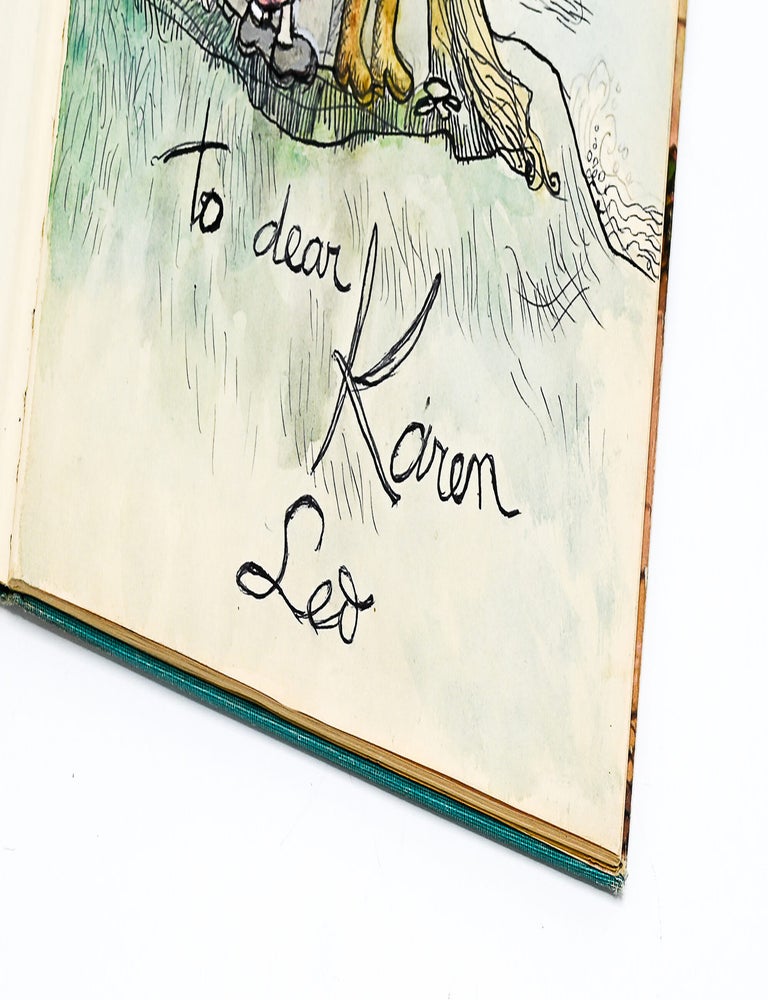 To dear
Karen
Leo